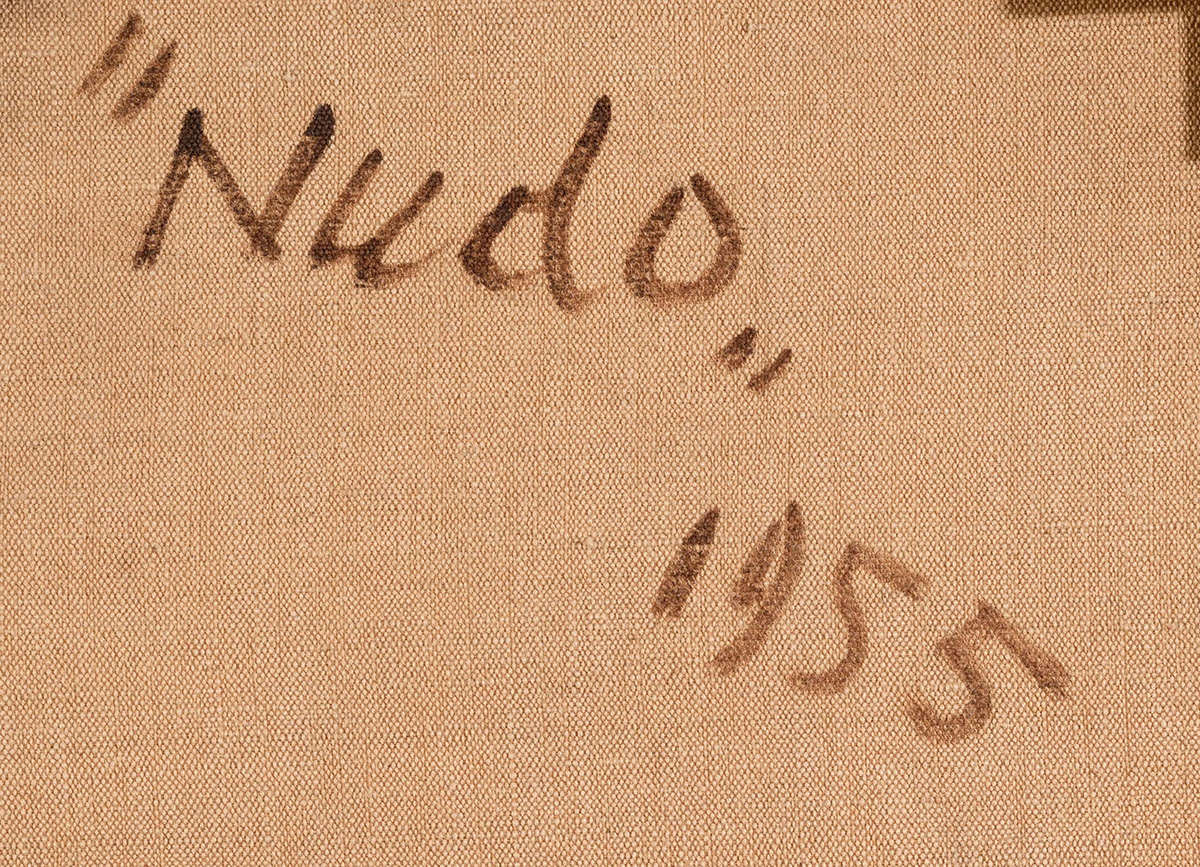 "Nudo"
1955